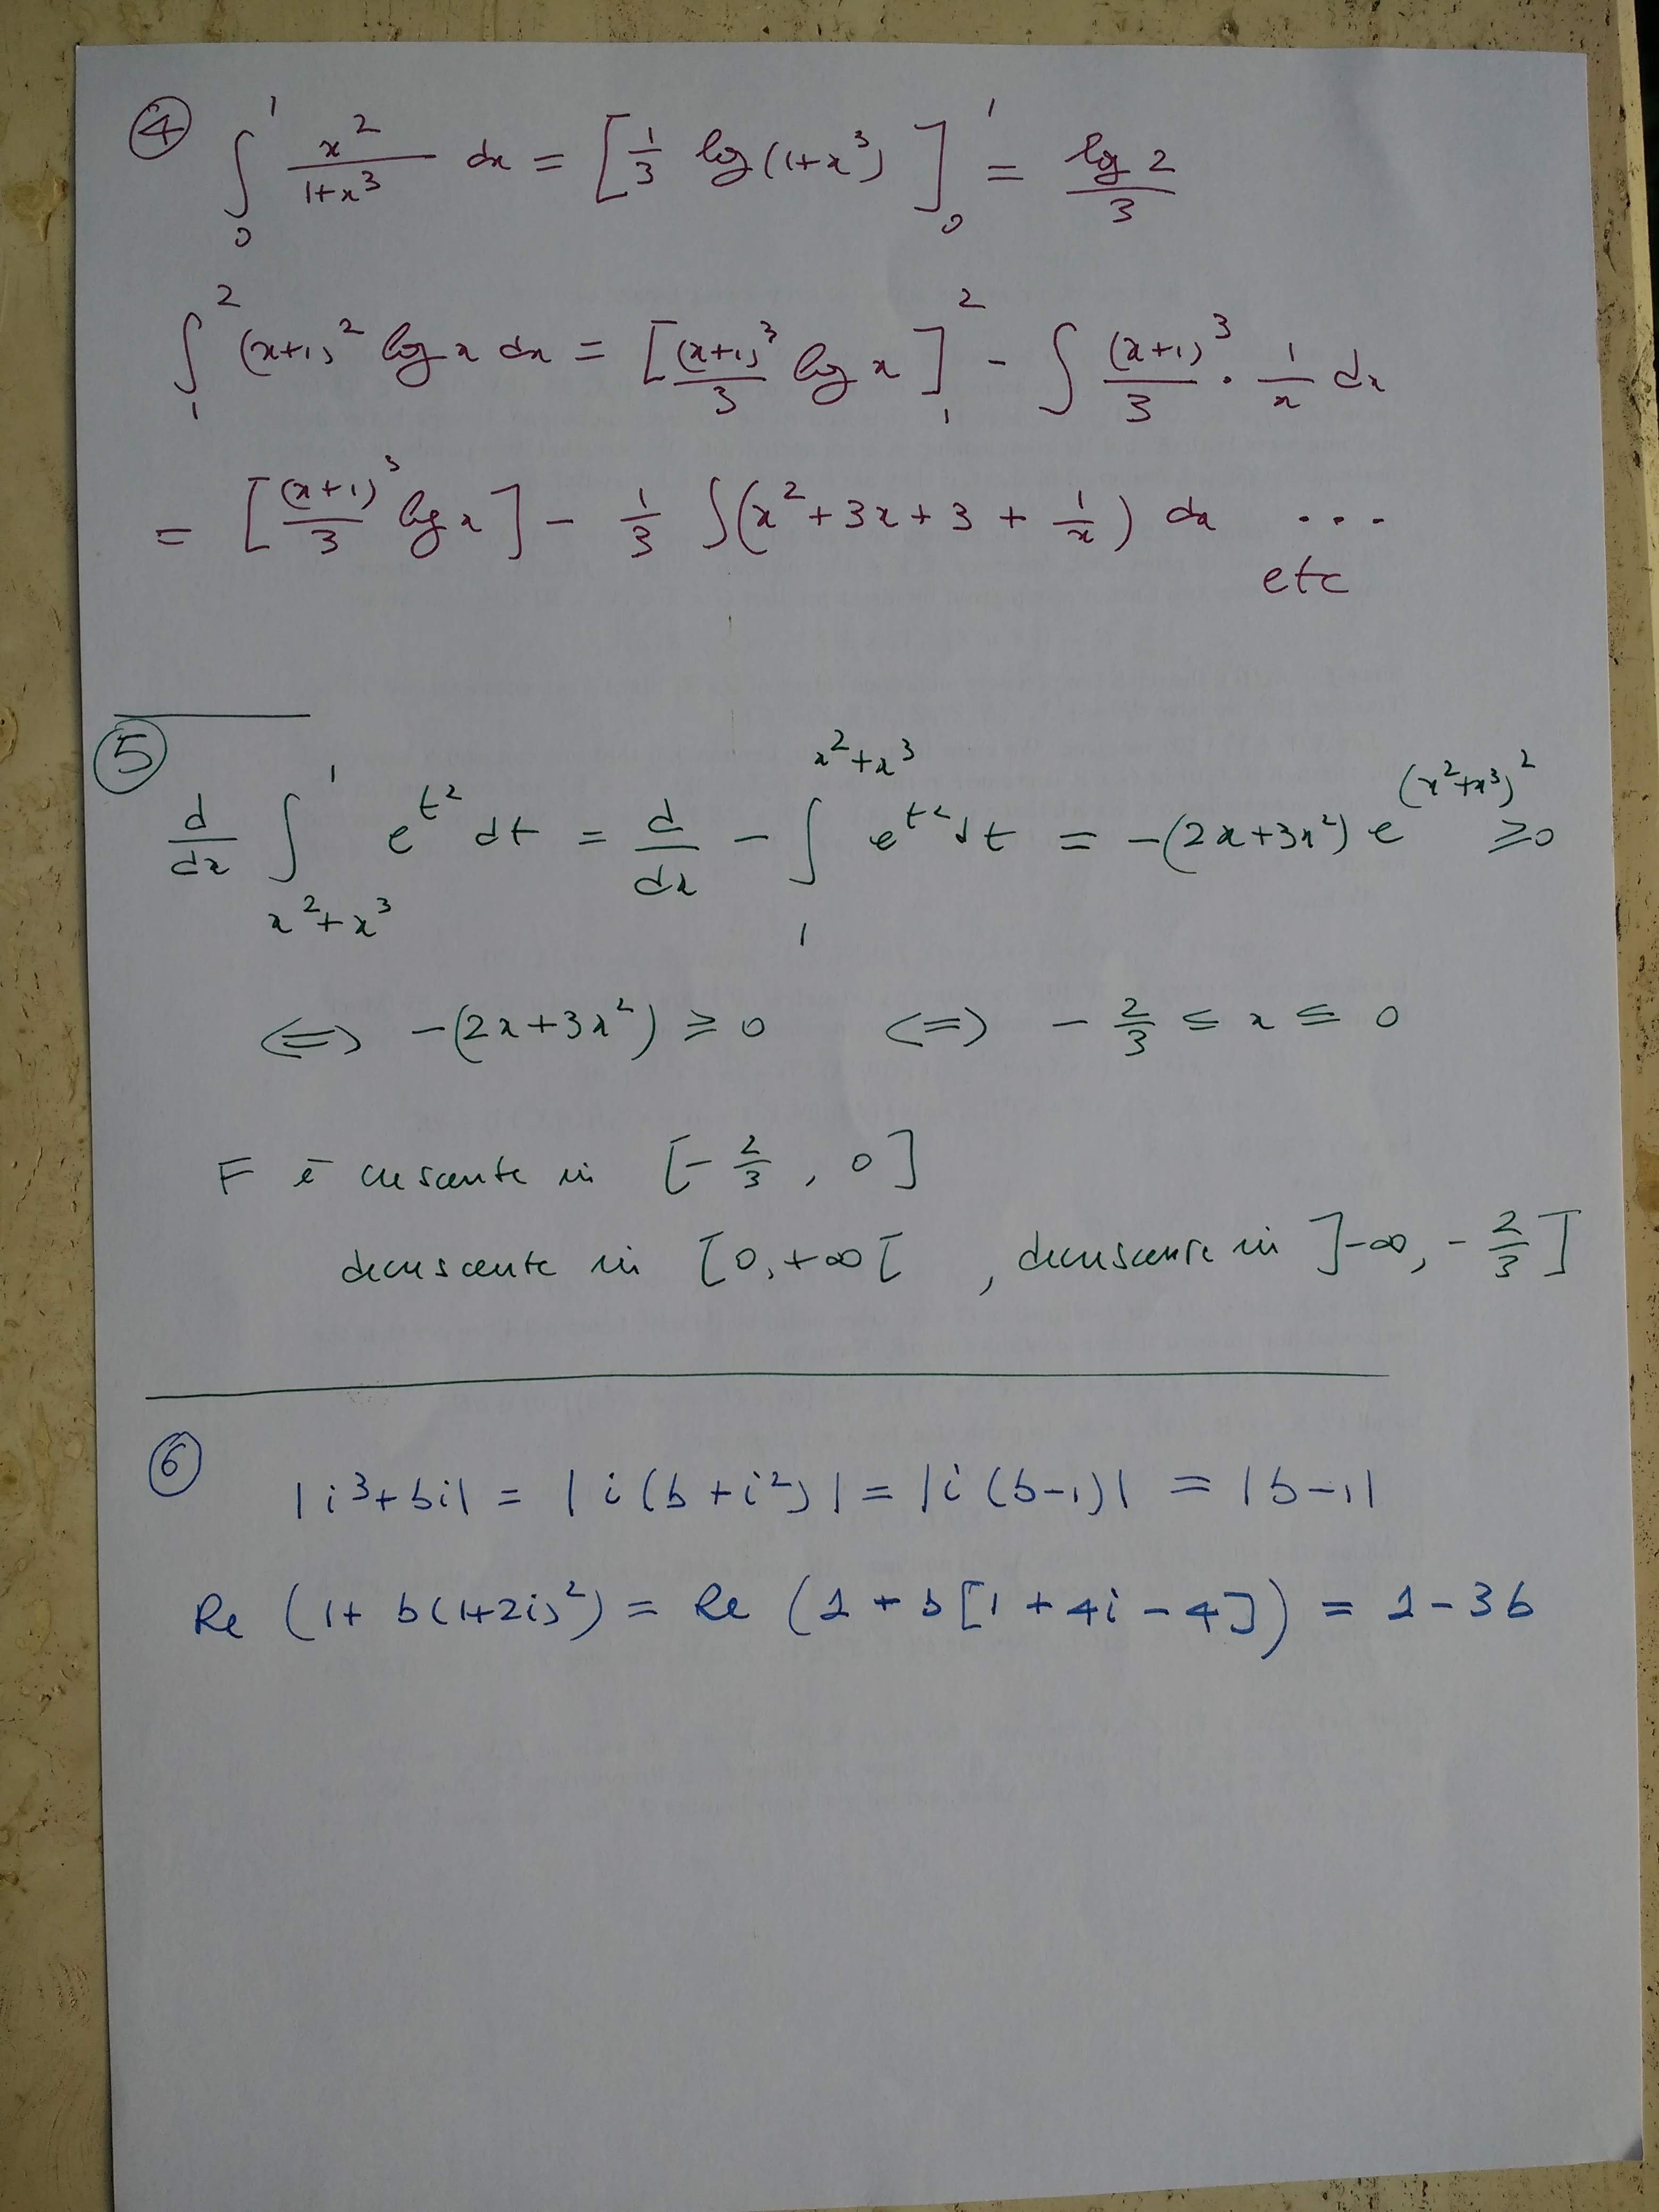 ④ ∫₀¹ x²/(1+x³) dx = [1/3 log(1+x³)]₀¹ = log 2/3
∫₁² (x+1)² log x dx = [(x+1)³/3 log x]₁² - ∫ (x+1)³/3 · 1/x dx
= [(x+1)³/3 log x] - 1/3 ∫(x²+3x+3+1/x) dx ...
etc
⑤
d/dx ∫_{x²+x³}^{1} e^{t²} dt = d/dx - ∫_{1}^{x²+x³} e^{t²} dt = -(2x+3x²) e^{(x²+x³)²} ≥0
⇔ -(2x+3x²) ≥ 0 ⇔ -2/3 ≤ x ≤ 0
F è crescente in [-2/3, 0]
decrescente in [0,+∞[ , decrescente in ]-∞, -2/3]
⑥ |i³+bi| = |i(b+i²)| = |i(b-1)| = |b-1|
Re (1+b(1+2i)²) = Re (1+b[1+4i-4]) = 1-3b